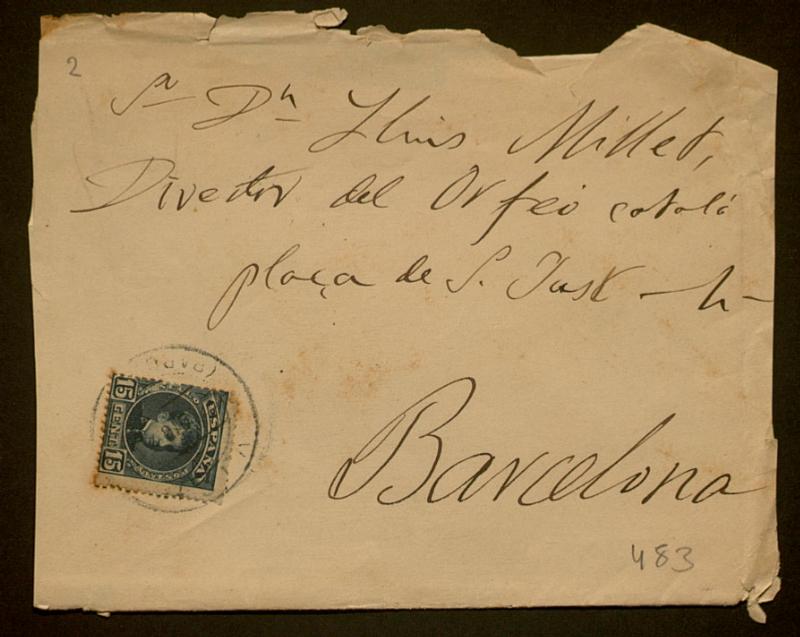 2
Sr Dn Lluis Millet,
Director del Orfeó català
plaça de S. Just - 4 -
Barcelona
15 CENTS 15
ESPAÑA
(BARC
483